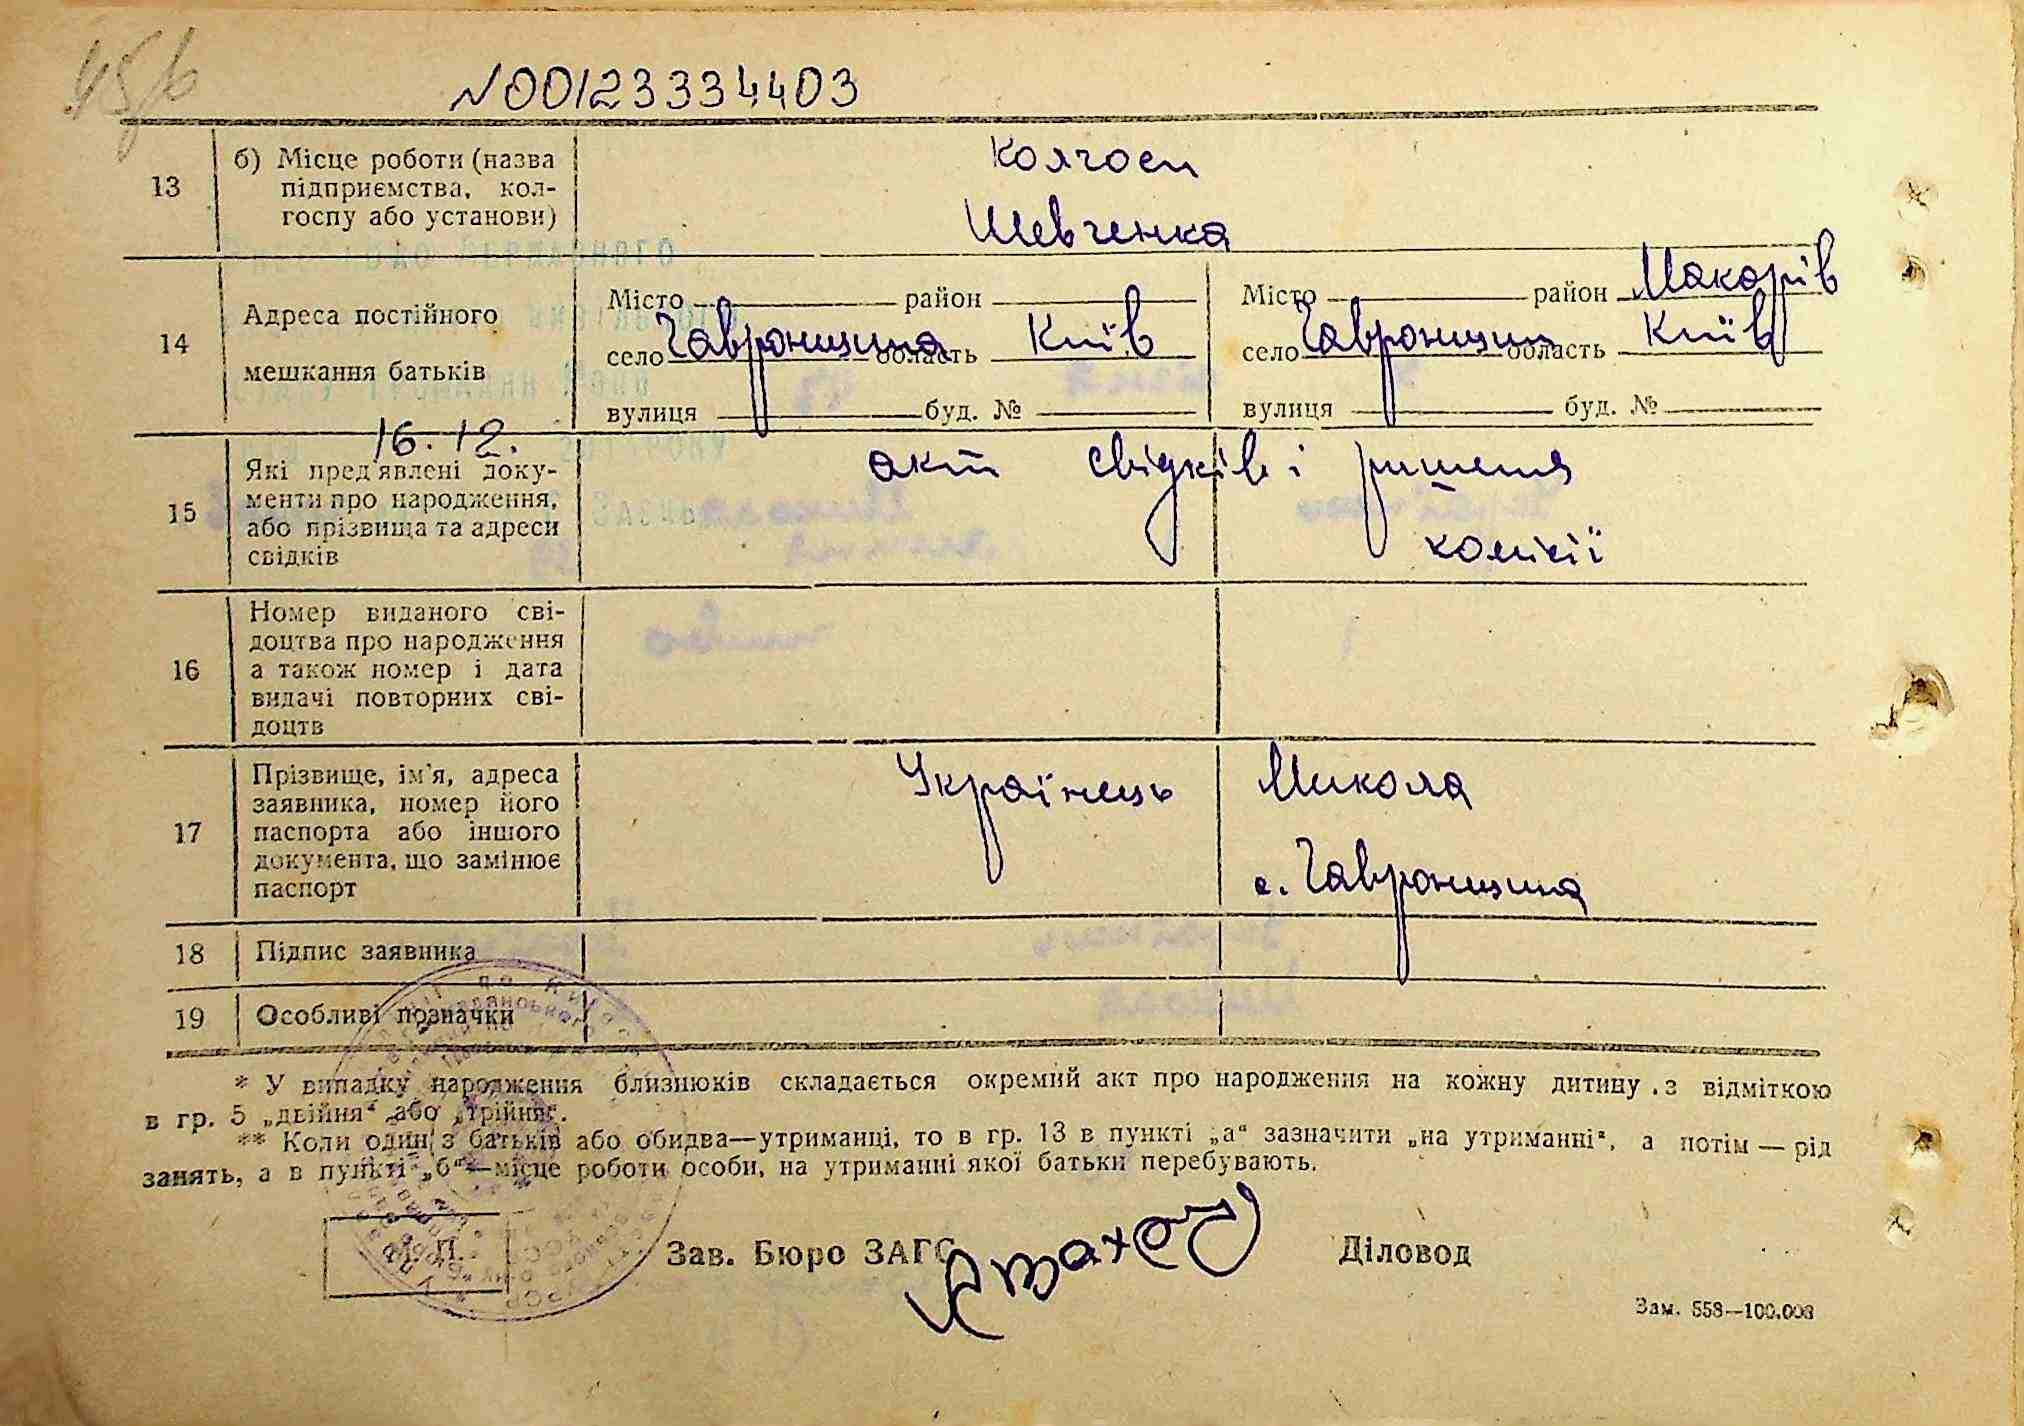 №00123334403
13
б) Місце роботи (назва
підприємства, кол-
госпу або установи)
Колгосп
Шевченка
14
Адреса постійного
мешкання батьків
Місто район
село Гавронщина область Київ
вулиця буд. №
Місто район Макарів
село Гавронщина область Київ
вулиця буд. №
16.12.
15
Які пред'явлені доку-
менти про народження,
або прізвища та адреси
свідків
акт свідків і рішення
комісії
16
Номер виданого сві-
доцтва про народження
а також номер і дата
видачі повторних сві-
доцтв
17
Прізвище, ім'я, адреса
заявника, номер його
паспорта або іншого
документа, що замінює
паспорт
Українець Микола
с. Гавронщина
18 Підпис заявника
19 Особливі позначки
* У випадку народження близнюків складається окремий акт про народження на кожну дитину з відміткою
в гр. 5 „двійня“ або „трійня“.
** Коли один з батьків або обидва—утриманці, то в гр. 13 в пункті „а“ зазначити „на утриманні“, а потім — рід
занять, а в пункті „б“—місце роботи особи, на утриманні якої батьки перебувають.
М. П.
Зав. Бюро ЗАГС
Діловод
Зам. 558—100.003